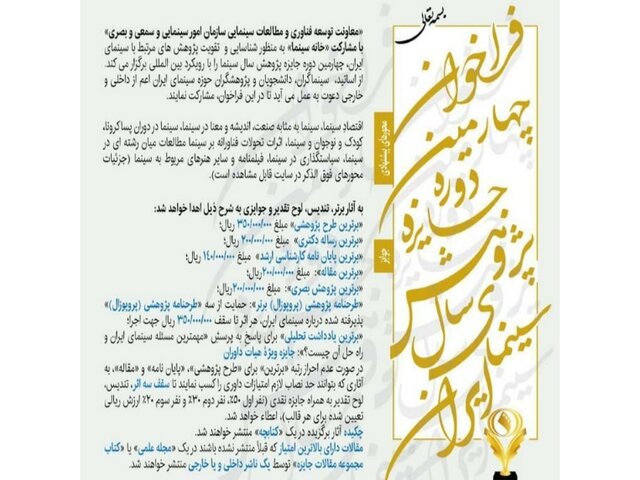 بسمه‌تعالی
فراخوان
چهارمین
دوره
جایزه
پژوهش
سال
سینمای ایران
«معاونت توسعه فناوری و مطالعات سینمایی سازمان امور سینمایی و سمعی و بصری»
با مشارکت «خانه سینما» به منظور شناسایی و تقویت پژوهش های مرتبط با سینمای
ایران، چهارمین دوره جایزه پژوهش سال سینما را با رویکرد بین المللی برگزار می کند.
از اساتید، سینماگران، دانشجویان و پژوهشگران حوزه سینمای ایران اعم از داخلی و
خارجی دعوت به عمل می آید تا در این فراخوان، مشارکت نمایند.
محورهای پیشنهادی
اقتصادِ سینما، سینما به مثابه صنعت، اندیشه و معنا در سینما، سینما در دوران پساکرونا،
کودک و نوجوان و سینما، اثرات تحولات فناورانه بر سینما مطالعات میان رشته ای در
سینما، سیاستگذاری در سینما، فیلمنامه و سایر هنرهای مربوط به سینما (جزئیات
محورهای فوق الذکر در سایت قابل مشاهده است).
جوایز
به آثار برتر، تندیس، لوح تقدیر و جوایزی به شرح ذیل اهدا خواهد شد:
«برترین طرح پژوهشی» مبلغ ۳۵۰/۰۰۰/۰۰۰ ریال؛
«برترین رساله دکتری» مبلغ ۲۰۰/۰۰۰/۰۰۰ ریال؛
«برترین پایان نامه کارشناسی ارشد» مبلغ ۱۴۰/۰۰۰/۰۰۰ ریال؛
«برترین مقاله»: مبلغ ۲۰۰/۰۰۰/۰۰۰ ریال؛
«برترین پژوهش بصری»: مبلغ ۲۰۰/۰۰۰/۰۰۰ ریال؛
«طرحنامه پژوهشی (پروپوزال) برتر»: حمایت از سه «طرحنامه پژوهشی (پروپوزال)»
پذیرفته شده درباره سینمای ایران، هر اثر تا سقف ۳۵۰/۰۰۰/۰۰۰ ریال جهت اجرا؛
«برترین یادداشت تحلیلی» برای پاسخ به پرسش «مهمترین مسئله سینمای ایران و
راه حل آن چیست؟»: جایزه ویژهٔ هیات داوران
در صورت عدم احراز رتبه «برترین» برای «طرح پژوهشی»، «پایان نامه» و «مقاله»، به
آثاری که بتوانند حد نصاب لازم امتیازات داوری را کسب نمایند تا سقف سه اثر، تندیس،
لوح تقدیر به همراه جایزه نقدی (نفر اول ۵۰٪، نفر دوم ۳۰٪ و نفر سوم ۲۰٪ ارزش ریالی
تعیین شده برای هر قالب)، اعطاء خواهد شد.
چکیده آثار برگزیده در یک «کتابچه» منتشر خواهند شد.
مقالات دارای بالاترین امتیاز که قبلاً منتشر نشده باشند در یک «مجله علمی» یا «کتاب
مجموعه مقالات جایزه» توسط یک ناشر داخلی و یا خارجی منتشر خواهند شد.